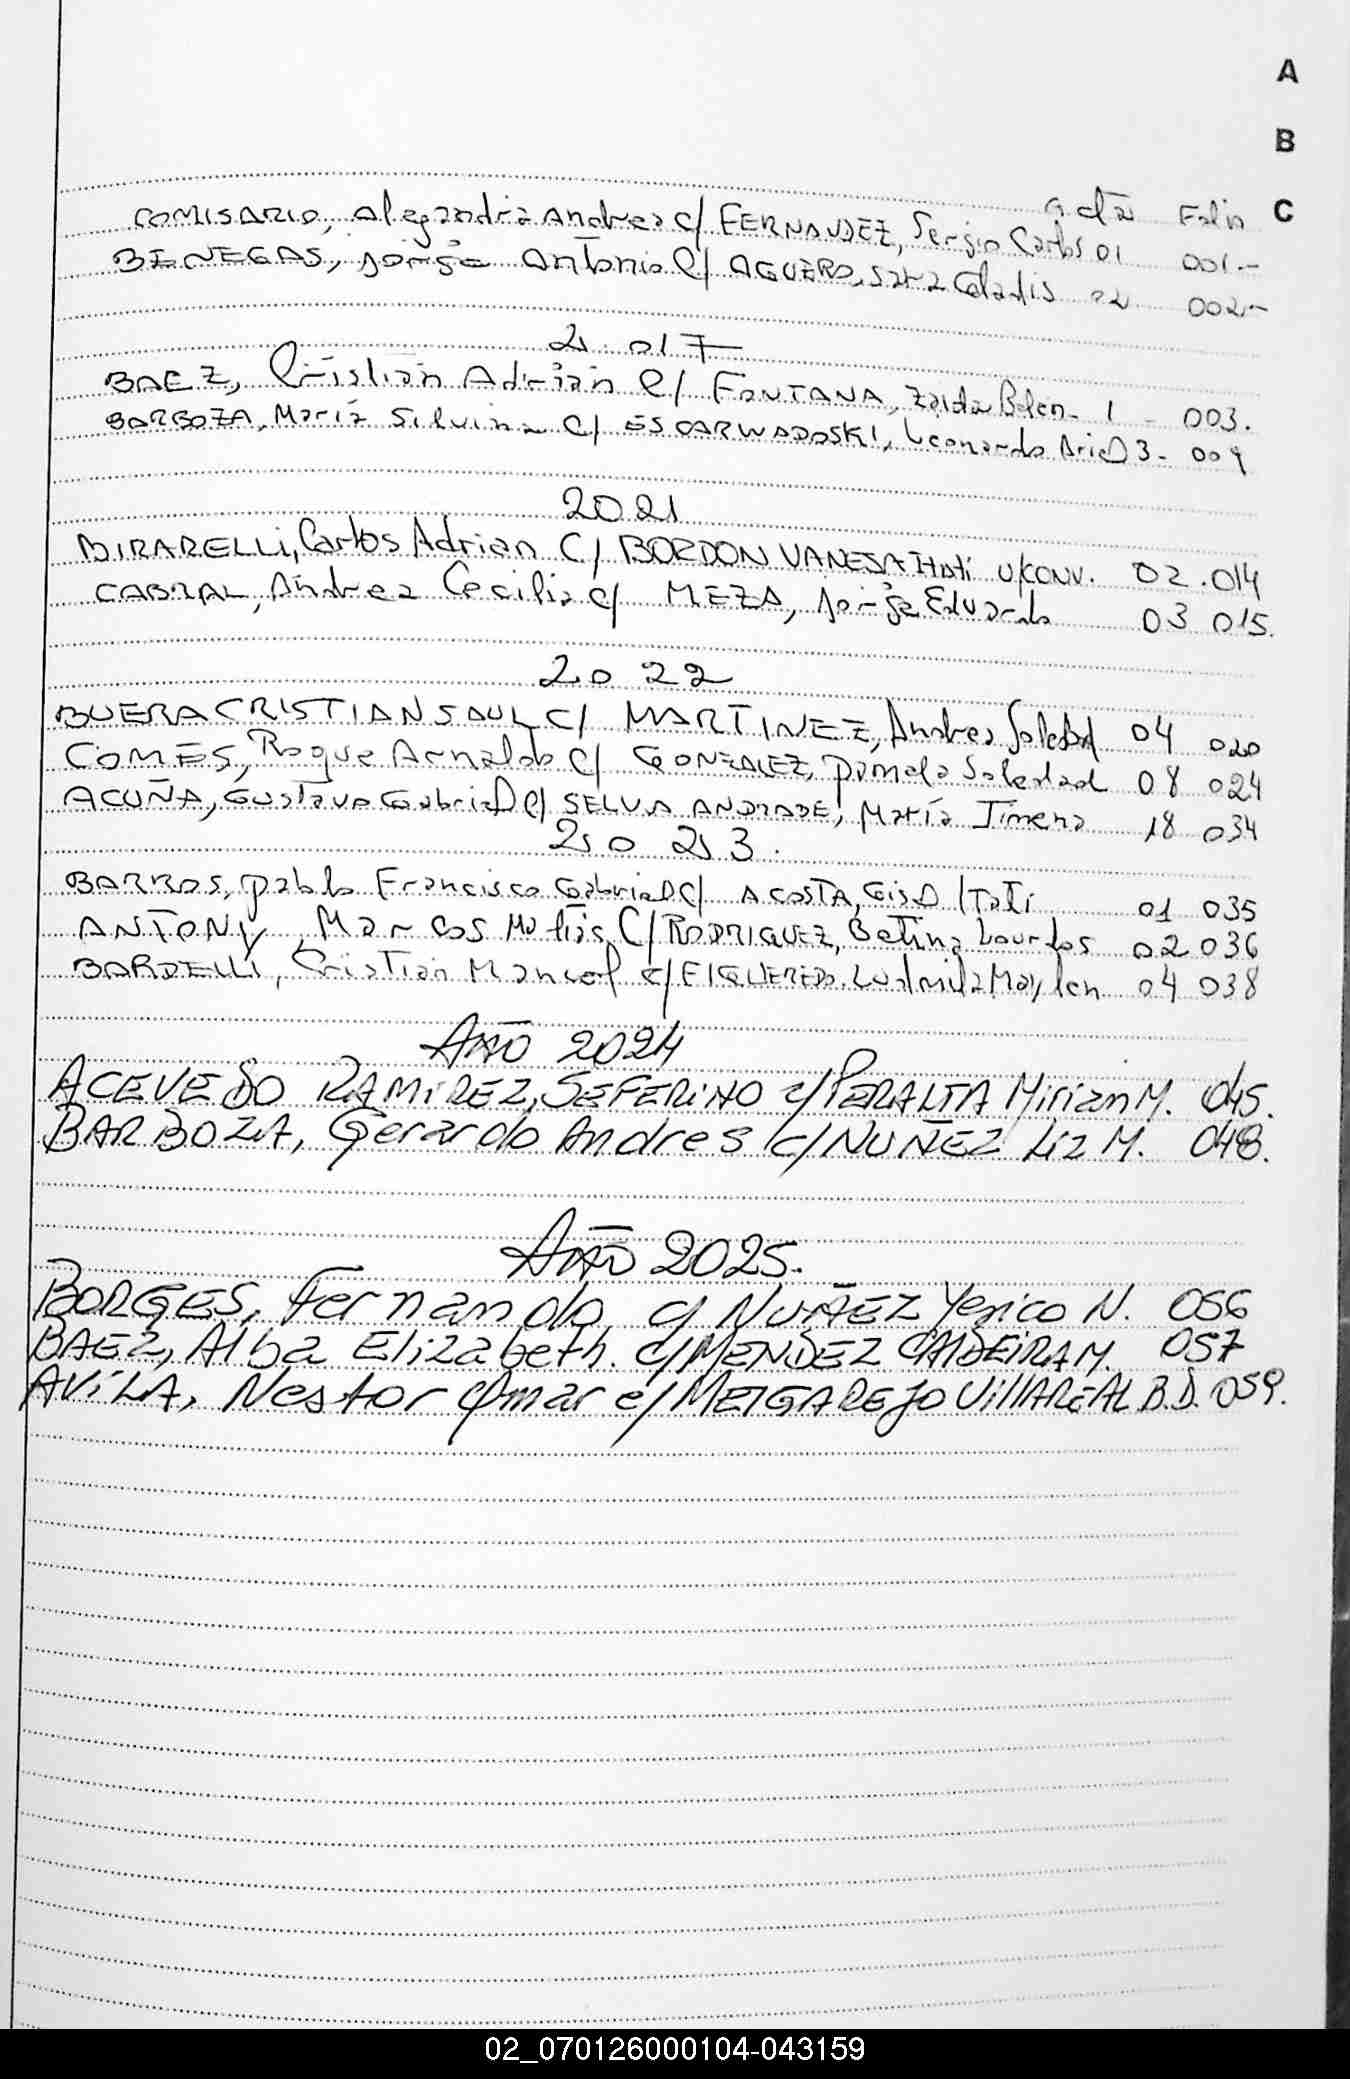 A
B
C
Acta Folio
COMISARIO, Alejandria Andrea c/ FERNANDEZ, Sergio Carlos 01 001.-
BENEGAS, Jorge Antonio c/ AGUERO, Sara Gladis 02 002.-
2.017
BAEZ, Cristian Adrian c/ FONTANA, Zaida Belen - 1 - 003.
BARBOZA, María Silvina c/ ESCARWADOSKI, Leonardo Ariel 3 - 009
2021
BIRARELLI, Carlos Adrian C/ BORDON VANESA Itati U/CONV. 02.014
CABRAL, Andrea Cecilia c/ MEZA, Jorge Eduardo 03 015.
2022
BUERA CRISTIAN SAUL C/ MARTINEZ, Andrea Soledad 04 020
COMES, Roque Arnaldo c/ GONZALEZ, pamela Soledad 08 024
ACUÑA, Gustavo Gabriel c/ SELVA ANDRADE, María Jimena 18 034
2023.
BARROS, pablo Francisco Gabriel C/ ACOSTA, Gisel Itati 01 035
ANTONY, Marcos Matias C/ RODRIGUEZ, Betina Lourdes 02 036
BARDELLI, Cristian Manuel c/ FIGUEREDO, Ludmila Maylen 04 038
AÑO 2024
ACEVEDO RAMIREZ, SEFERINO c/ PERALTA Mirian M. 045.
BARBOZA, Gerardo Andres c/ NUÑEZ Liz M. 048.
AÑO 2025.
BORGES, Fernando c/ NUÑEZ Yesica N. 056
BAEZ, Alba Elizabeth. c/ MENDEZ CALDEIRA M. 057
AVILA, Nestor Omar c/ MELGAREJO VILLAREAL B.D. 059.
02_070126000104-043159